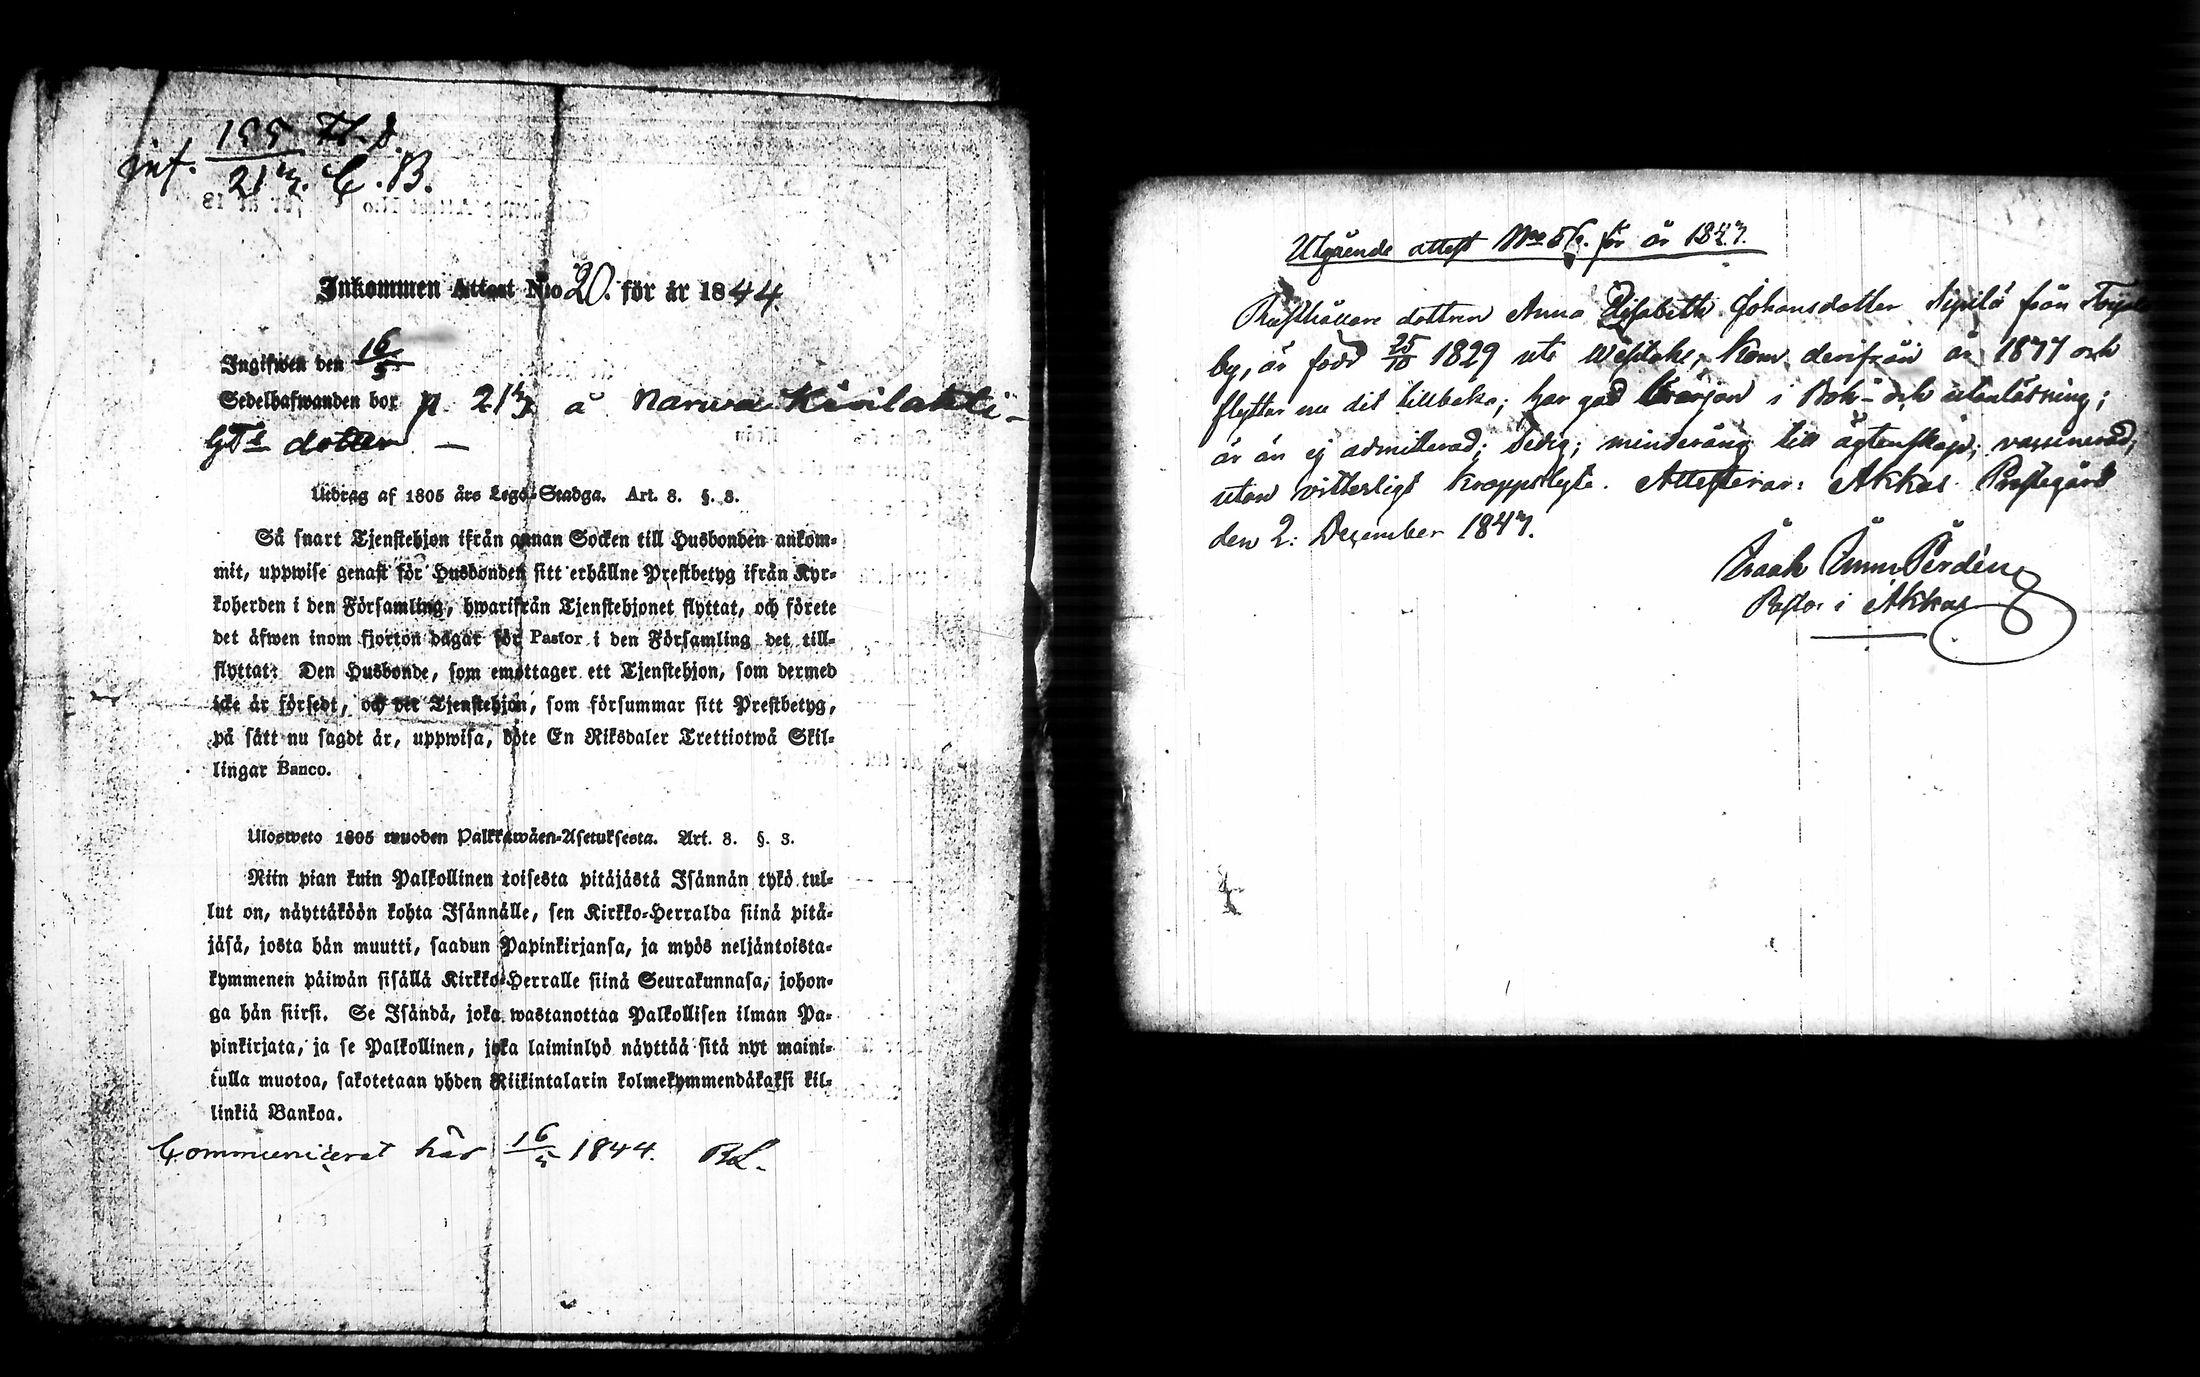 inf. 155 Fl. d.
217. C. B.
Inkommen Attest N:o 20. för år 1844.
Ingifwen den 16/5
Sedelhafwanden bor p. 217 å Narwa Kivilahti
GTs dotter —
Utdrag af 1805 års Lego-Stadga. Art. 3. §. 3.
Så snart Tjenstehjon ifrån annan Socken till Husbonden ankom-
mit, uppwise genast för Husbonden sitt erhållne Prestbetyg ifrån Kyr-
koherden i den Församling, hwarifrån Tjenstehjonet flyttat, och förete
det äfwen inom fjorton dagar för Pastor i den Församling det till-
flyttat: Den Husbonde, som emottager ett Tjenstehjon, som dermed
icke är försedt, och det Tjenstehjon, som försummar sitt Prestbetyg,
på sätt nu sagdt är, uppwisa, böte En Riksdaler Trettiotwå Skil-
lingar Banco.
Ulosweto 1805 wuoden Palkkawäen-Asetuksesta. Art. 3. §. 3.
Niin pian kuin Palkollinen toisesta pitäjästä Isännän tykö tul-
lut on, näyttäköön kohta Isännälle, sen Kirkko-Herralda siinä pitä-
jäsä, josta hän muutti, saadun Papinkirjansa, ja myös neljäntoista-
kymmenen päiwän sisällä Kirkko-Herralle siinä Seurakunnasa, johon-
ga hän siirsi. Se Isändä, joka wastanottaa Palkollisen ilman Pa-
pinkirjata, ja se Palkollinen, joka laiminlyö näyttää sitä nyt maini-
tulla muotoa, sakotetaan yhden Riikintalarin kolmekymmendäkaksi kil-
linkiä Bankoa.
Communicerat här 16/5 1844. BL.
Utgående attest No 56. för år 1847.
Rusthållare dottren Anna Lisabetha Johansdotter Sipilä från
by, är född 25/10 1829 uti Wesilaks, kom derifrån år 1844 och
flyttar nu dit tillbaka; har god början i Bok- och utanläsning;
är än ej admitterad; ledig; minderårig till ägtenskap; vaccinerad;
utan vitterligt kroppslyte. Attesterar: Akkas Prestegård
den 2. December 1847.
Pastor i Akkas